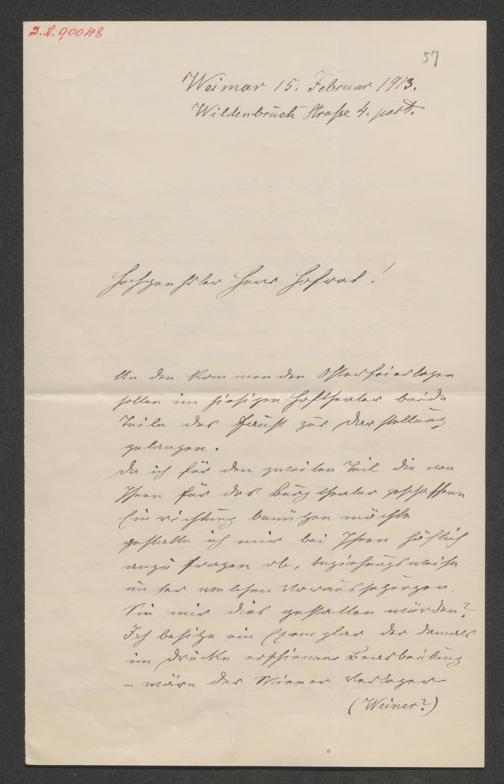 J.N. 90048
57
Weimar 15. Februar 1913.
Wildenbruch Straße 4. part.
Hochgeehrter Herr Hofrat!
An den kommenden Osterfeiertagen
sollen im hiesigen Hoftheater beide
Teile des Faust zur Darstellung
gelangen.
Da ich für den zweiten Teil die von
Ihnen für das Burgtheater geschaffene
Einrichtung benützen möchte
gestatte ich mir bei Ihnen höflich
anzufragen ob, beziehungsweise
unter welchen Voraussetzungen
Sie mir dies gestatten würden?
Ich besitze ein Exemplar der damals
im Drucke erschienenen Bearbeitung
– wäre der Wiener Verleger
(Weiner?)